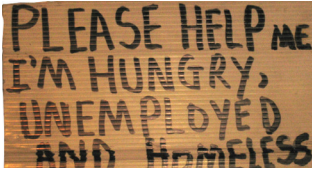 PLEASE HELP ME
I'M HUNGRY,
UNEMPLOYED
AND HOMELESS